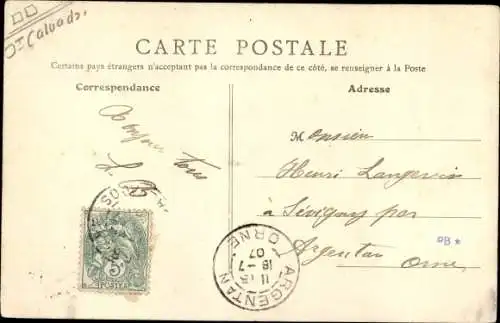 Dt Calvados
CARTE POSTALE
Certains pays étrangers n'acceptant pas la correspondance de ce côté, se renseigner à la Poste
Correspondance
Adresse
Bonjour
tous
Monsieur
Henri Langevin
à Sévigny par
Argentan
Orne
ARGENTAN
11 15
18 - 7
07
ORNE
5
POSTES
OB *